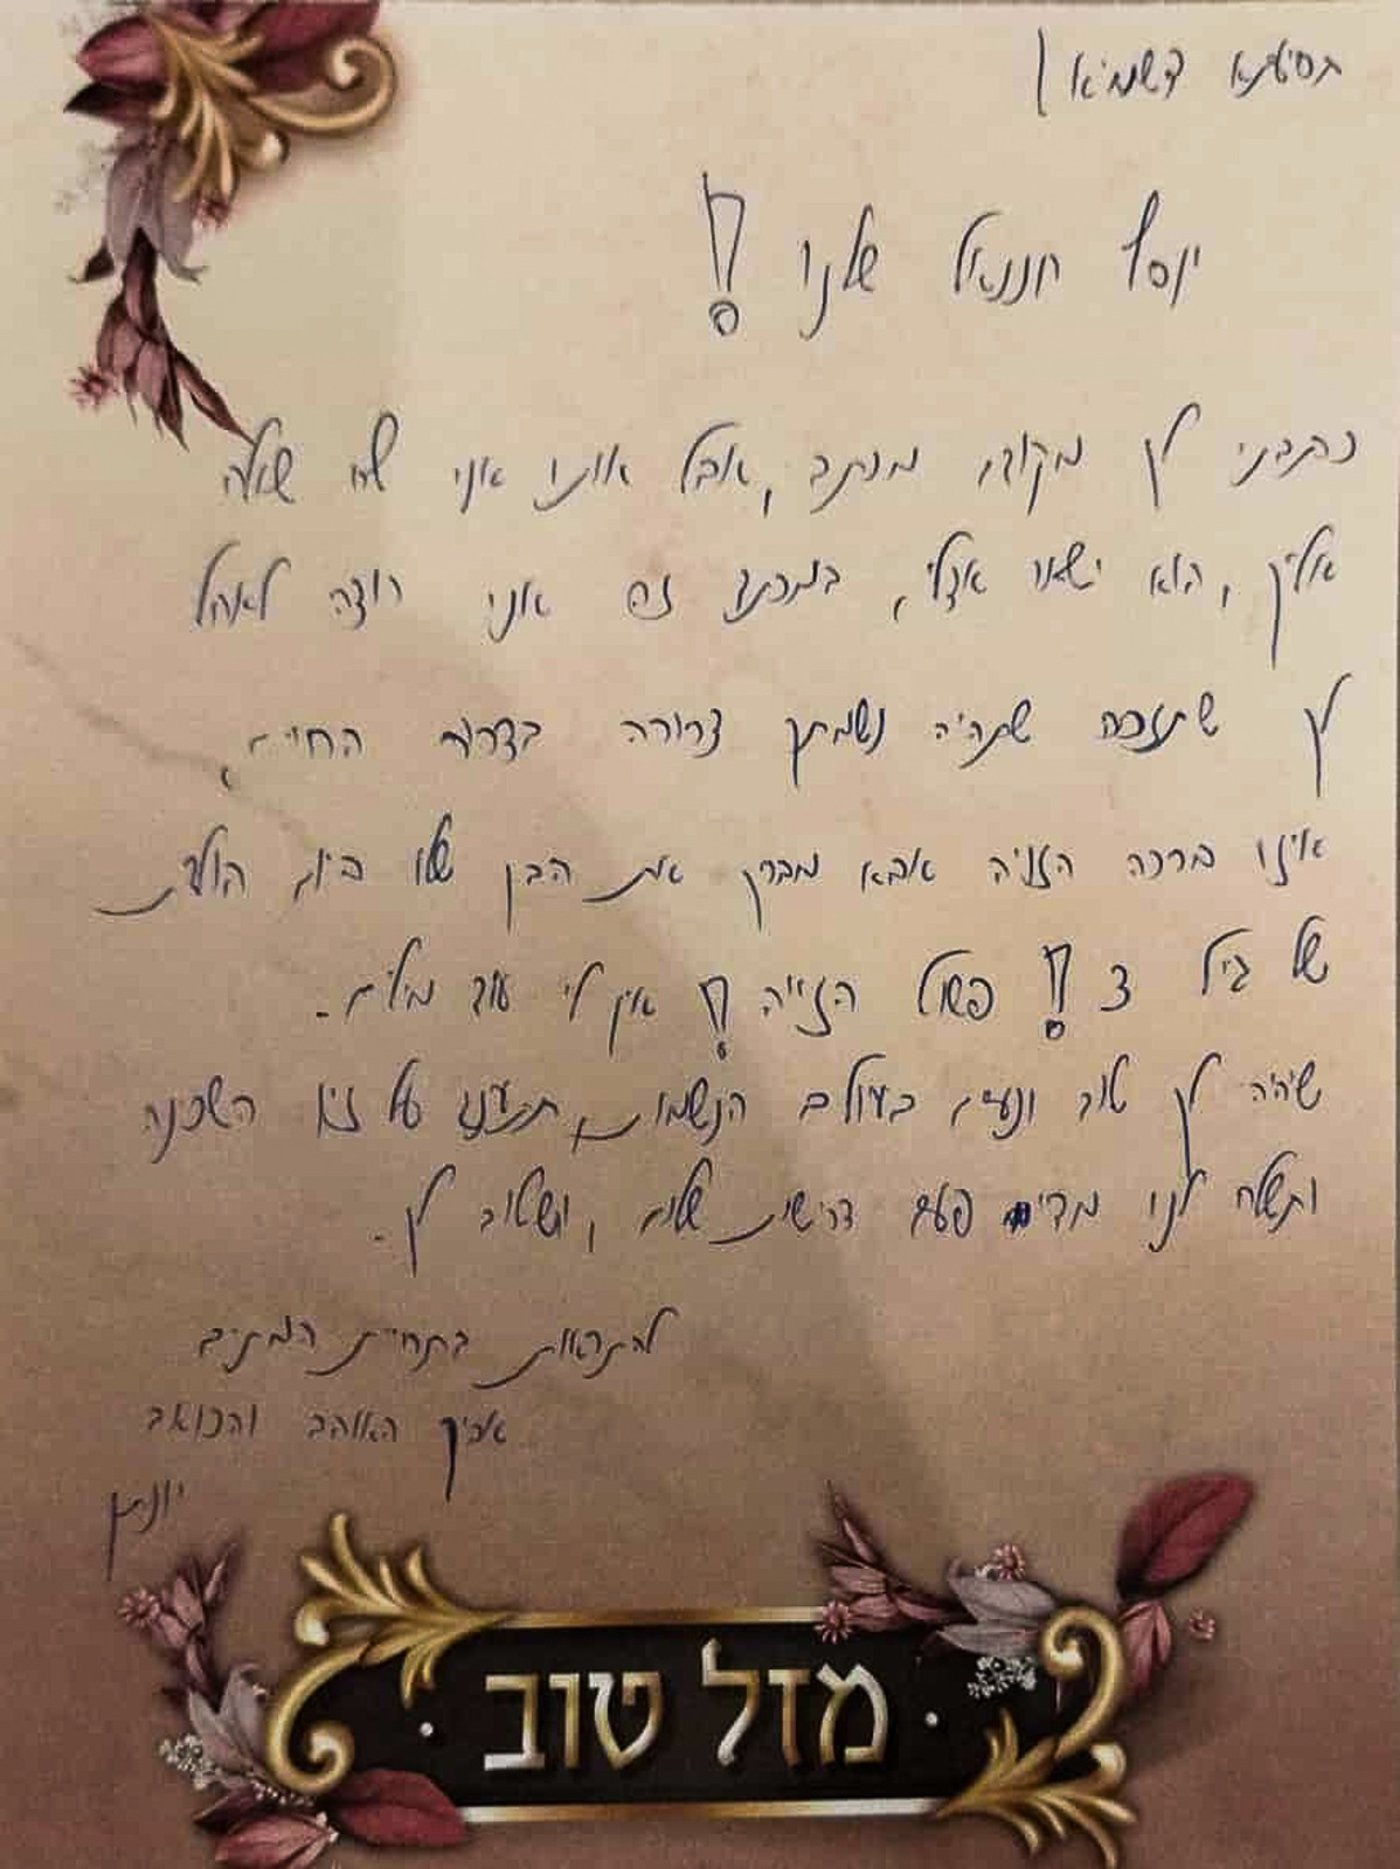 בסיעתא דשמיא
יוסף חננאל שלנו!
כתבתי לך מקודם מכתב, אבל אותו אני לא
אליך, הוא ישאר אצלי, במכתב זה אני רוצה לאחל
לך שתזכה שתהיה נשמתך צרורה בצרור החיים,
איזו ברכה הזויה אבא מברך את הבן שלו ביום הולדת
של גיל 3! פשוט הזייה! אין לי עוד מילים.
שיהיה לך טוב ונעים בעולם הנשמות, תתענג על זיו השכינה
ותשלח לנו מדי פעם דרישת שלום, ושטוב לך.
להתראות בתחיית המתים
אביך האוהב והכואב
יונתן
מזל טוב